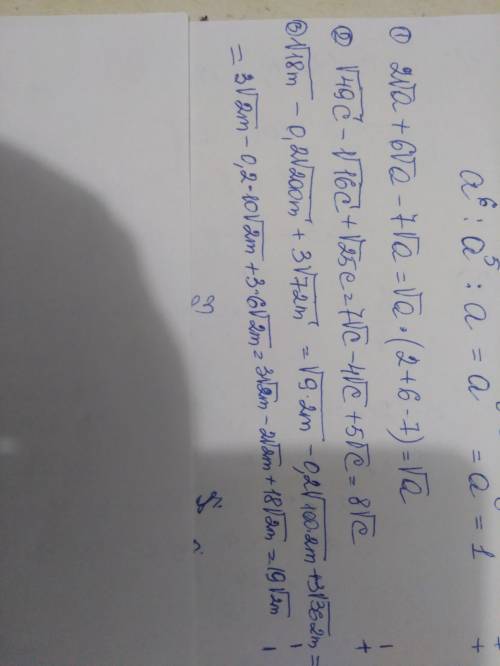 a⁶ : a⁵ : a = a = a = 1
① 2√a + 6√a - 7√a = √a · (2 + 6 - 7) = √a
② √49c - √16c + √25c = 7√c - 4√c + 5√c = 8√c
③ √18m - 0,2√200m + 3√72m = √9·2m - 0,2√100·2m + 3√36·2m =
= 3√2m - 0,2·10√2m + 3·6√2m = 3√2m - 2√2m + 18√2m = 19√2m